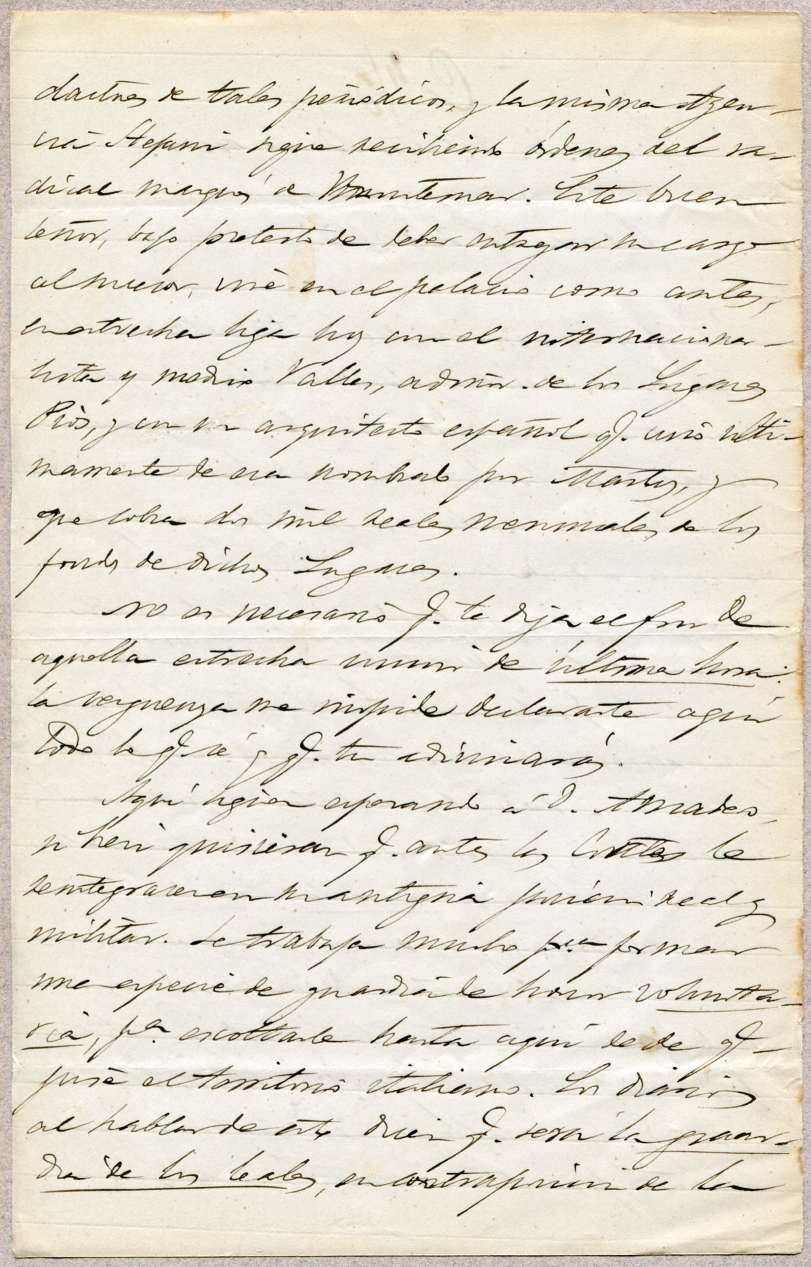 dactores de tales periódicos, y la misma Agen-
cia Stefani sigue recibiendo órdenes del ra-
dical marqués de Montemar. Este buen
señor, bajo pretesto de deber entregar su cargo
al sucesor, vive en el palacio como antes,
en estrecha liga hoy con el internaciona-
lista y médico Valles, admor. de los Lugares
Píos, y con un arquitecto español q. vino ulti-
mamente de esa nombrado por Martos, y
que cobra dos mil reales mensuales de los
fondos de dichos Lugares.
No es necesario q. te diga el fin de
aquella estrecha union de última hora:
la vergüenza me impide declararte aquí
todo lo q. sé y q. tu adivinarás.
Aquí siguen esperando á D. Amadeo,
si bien quisieran q. antes las Cortes le
reintegrasen en su antigua posicion real y
militar. Se trabaja mucho pra formar
una especie de guardia de honor volunta-
ria, pa. escoltarle hasta aquí desde q.
pise el territorio italiano. Los diarios
al hablar de esto dicen q. será la guar-
dia de los leales, en contraposicion de la